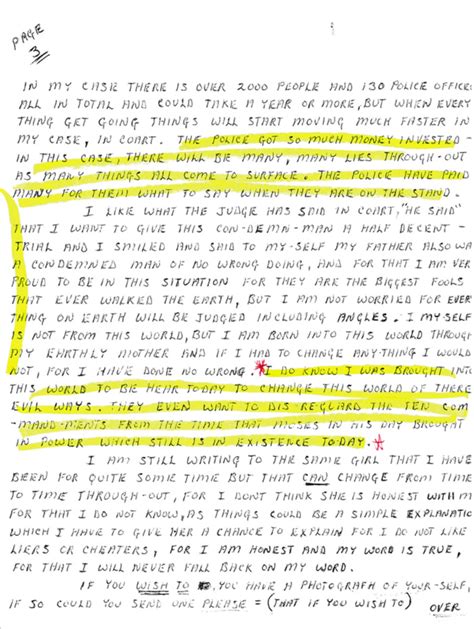 PAGE
3
IN MY CASE THERE IS OVER 2000 PEOPLE AND 130 POLICE OFFICE
ALL IN TOTAL AND COULD TAKE A YEAR OR MORE, BUT WHEN EVERY
THING GET GOING THINGS WILL START MOVING MUCH FASTER IN
MY CASE, IN COART. THE POLICE GOT SO MUCH MONEY INVESTED
IN THIS CASE, THERE WILL BE MANY, MANY LIES THROUGH-OUT
AS MANY THINGS ALL COME TO SURFACE. THE POLICE HAVE PAID
MANY FOR THEM WHAT TO SAY WHEN THEY ARE ON THE STAND.
I LIKE WHAT THE JUDGE HAS SAID IN COART, "HE SAID"
THAT I WANT TO GIVE THIS CON-DEMN-MAN A HALF DECENT-
TRIAL AND I SMILED AND SAID TO MY-SELF MY FATHER ALSO WA
A CONDEMNED MAN OF NO WRONG DOING, AND FOR THAT I AM VER
PROUD TO BE IN THIS SITUATION FOR THEY ARE THE BIGGEST FOOLS
THAT EVER WALKED THE EARTH, BUT I AM NOT WORRIED FOR EVER
THING ON EARTH WILL BE JUDGED INCLUDING ANGLES. I MY-SELF
IS NOT FROM THIS WORLD, BUT I AM BORN INTO THIS WORLD THROUGH
MY EARTHLY MOTHER AND IF I HAD TO CHANGE ANY-THING I WOULD
NOT, FOR I HAVE DONE NO WRONG. *I DO KNOW I WAS BROUGHT INTO
THIS WORLD TO BE HEAR TODAY TO CHANGE THIS WORLD OF THERE
EVIL WAYS. THEY EVEN WANT TO DIS-REGUARD THE TEN COM
MAND-MENTS FROM THE TIME THAT MOSES IN HIS DAY BROUGHT
IN POWER WHICH STILL IS IN EXISTENCE TODAY.*
I AM STILL WRITING TO THE SAME GIRL THAT I HAVE
BEEN FOR QUITE SOME TIME BUT THAT CAN CHANGE FROM TIME
TO TIME THROUGH-OUT, FOR I DONT THINK SHE IS HONEST WITH M
FOR THAT I DO NOT KNOW, AS THINGS COULD BE A SIMPLE EXPLANATIO
WHICH I HAVE TO GIVE HER A CHANCE TO EXPLAIN FOR I DO NOT LIKE
LIERS OR CHEATERS, FOR I AM HONEST AND MY WORD IS TRUE,
FOR THAT I WILL NEVER FALL BACK ON MY WORD.
IF YOU WISH TO, YOU HAVE A PHOTOGRAPH OF YOUR-SELF,
IF SO COULD YOU SEND ONE PLEASE = (THAT IF YOU WISH TO) OVER